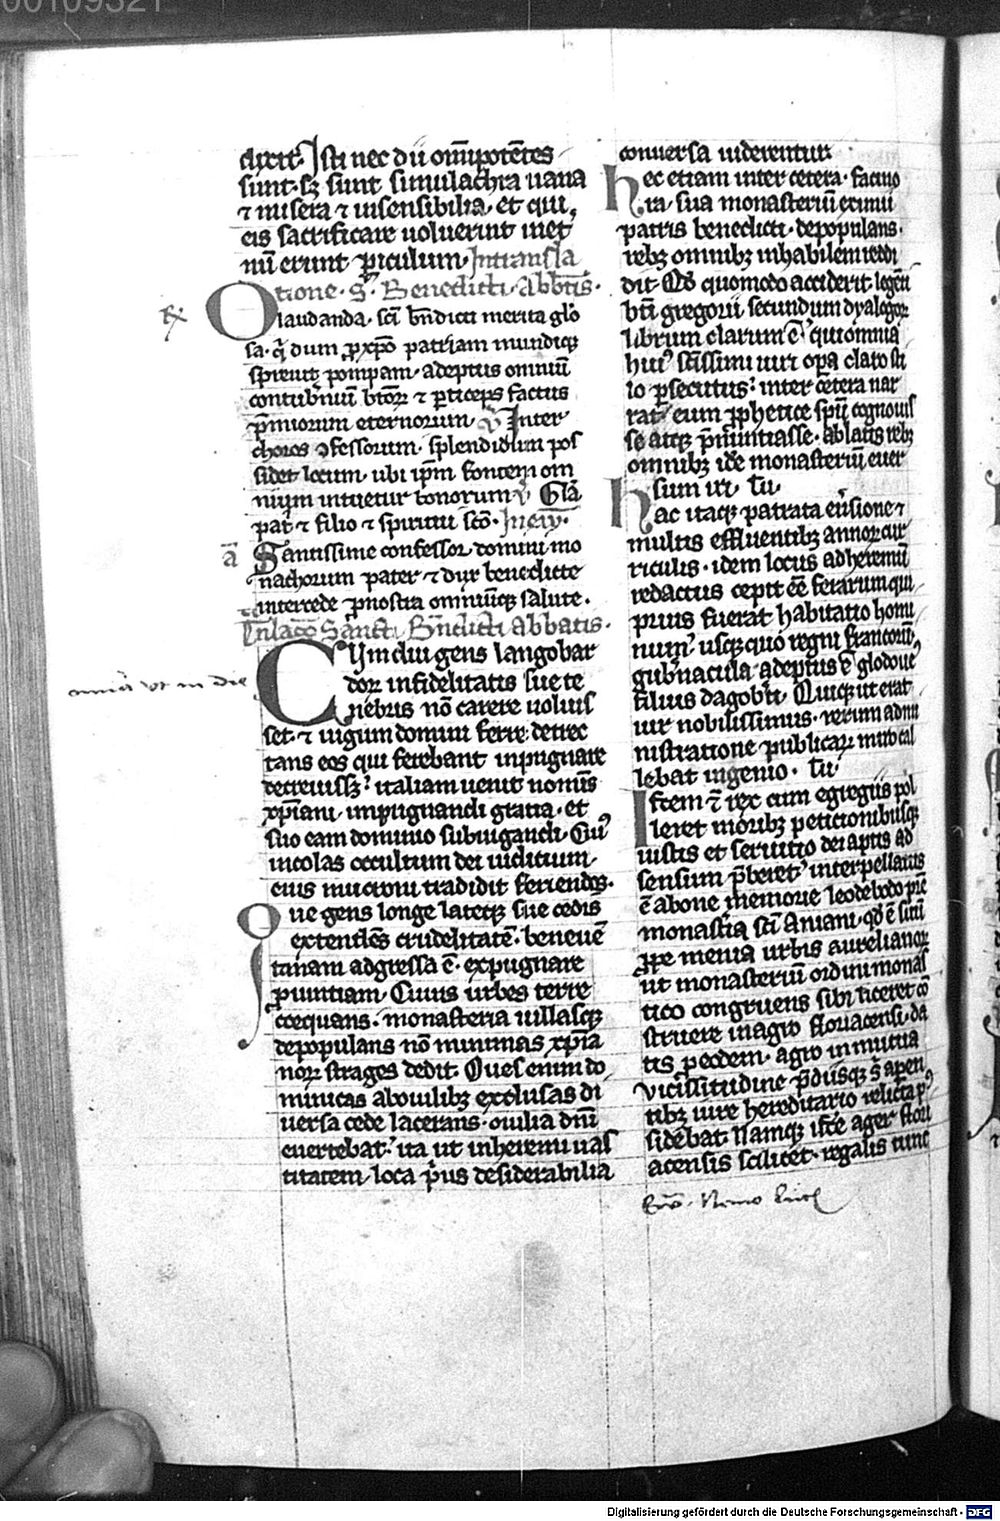 00109321
dixit. Isti nec dii om̅ipote̅tes
sunt. sꝫ sunt simulachra uana
⁊ misera ⁊ insensibilia. et qui
eis sacrificare uoluerint inet̾
nu̅ erunt p̾iculum. In transla
tione. S. Benedicti. abb̅tis.
O laudanda. sc̅i b̅ndicti merita glo̾
sa. q̾ dum ꝓ xp̅o patriam mundiqꝫ
spreuit pompam. adeptus omniu̅
contub̾niu̅ bto̅ꝝ ⁊ ꝑticeps factus
p̅miorum eternorum. v̾ Inter
choros ꝯfessorum. splendidum pos
sidet locum. ubi ip̅m fontem om
nium intuetur bonorum. v̾ Gl̅a
pat̾ ⁊ filio ⁊ spiritui sc̅o.
a̅ Sanctissime confessor domini mo
nachorum pater ⁊ dux benedicte
intercede ꝓ nostra omniu̅qꝫ salute.
Sancti. B̅ndicti abbatis.
Cum diu gens langobar
doꝝ infidelitatis sue te
nebris no̅ carere uoluis
set. ⁊ iugum domini ferre detrec
tans eos qui ferebant inpugnare
decreuissꝫ. italiam uenit nominis
xp̅iani. impugnandi gratia. et
suo eam dominio subiugandi. Cui᾿
incolas occultum dei iudicium.
eius mucroni tradidit feriendos.
Que gens longe lateqꝫ sue cedis
extende̅s crudelitate̅. beneue̅
tanam adgressa e̅. expugnare
ꝓuintiam. Cuius urbes terre
coequans. monasteria uillasqꝫ
depopulans no̅ minimas xp̅ia
noꝝ strages dedit. Oues enim do
minicas ab ouilibꝫ exclusas di
uersa cede lacerans. ouilia dn̅i
euertebat. ita ut in heremi uas
titatem. loca p̾us desiderabilia
conuersa uiderentur.
Hec etiam inter cetera. facino
ra. sua monasteriu̅ eximii
patris benedicti. depopulans.
rebꝫ omnibꝫ inhabilem reddi
dit. Qd̅ quomodo acciderit. lege̅ti
bt̅i gregorii secundum dyalogoꝝ
librum clarum e̅. qui omnia
hui᾿ sc̅issimi uiri op̅a claro sti
lo ꝓsecutus. inter cetera nar
rat eum ꝓphetice sp̅u cognouis
se atqꝫ p̅nuntiasse. ablatis rebꝫ
omnibꝫ ide̅ monasteriu̅ euer
sum iri. Tu̅.
Hac itaqꝫ patrata eu̾sione ⁊
multis effluentibꝫ annoꝝ cur
riculis. idem locus ad heremu̅
redactus cepit e̅e ferarum qui
prius fuerat habitatio homi
num. usqꝫ quo regni francoru̅
gub̾nacula adeptus e̅ glodoue᾿
filius dagob̾ti. Qui qꝫ ut erat
uir nobilissimus. rerum admi
nistratione publicaꝝ mirab cal
lebat ingenio. Tu̅.
Is̅tem t̅ rex cum egregiis pol
leret moribꝫ peticionibusqꝫ
iustis et seruitio dei aptis ad
sensum p̅beret. interpellatus
e̅ a bone memorie leodebodo pr̅e
monast̾ia sc̅i Aniani. qd̅ e̅ situ̅
ꝓpe menia urbis aurelianoꝝ
ut monasteriu̅ ordini monas
tico congruens sibi liceret co̅
struere in agro floriacensi. da
tis ꝑ eodem. agro in mutua
uicissitudine p̅diisqꝫ s̾ apen̅
tibꝫ iure hereditario relicta p᾿
sidebat. Namqꝫ iste ager flori
acensis scilicet. regalis tunc
Digitalisierung gefördert durch die Deutsche Forschungsgemeinschaft - DFG